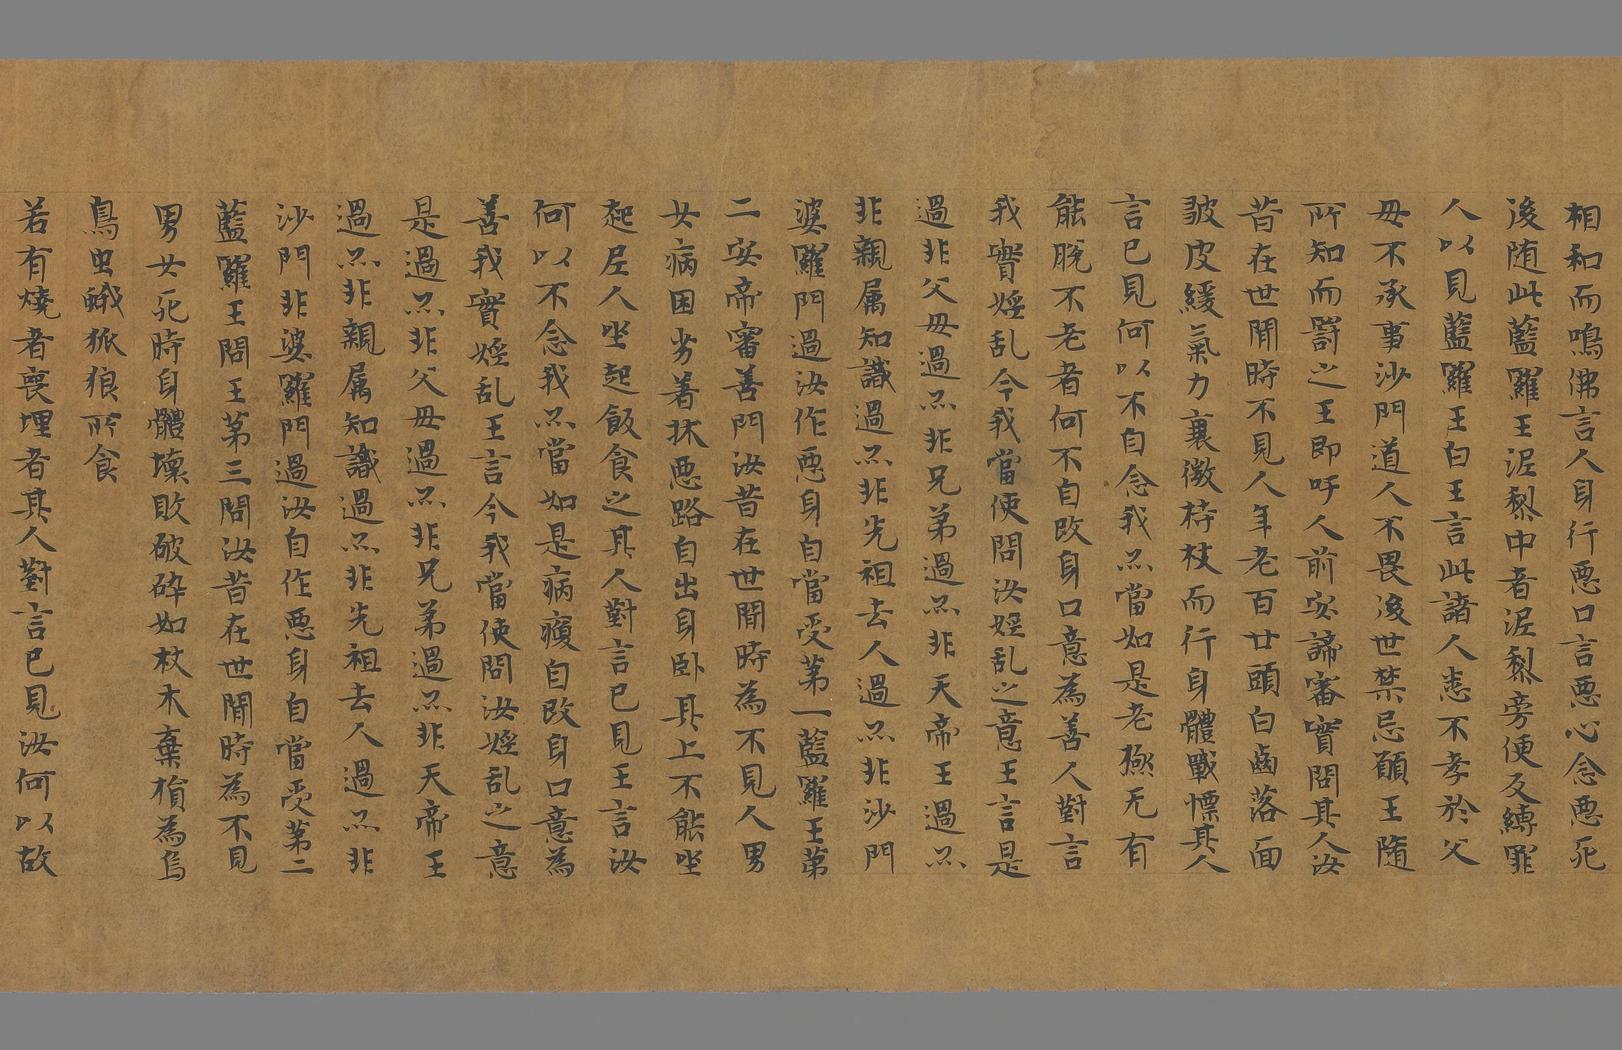 相和而鳴佛言人身行惡口言惡心念惡死
後随此藍羅王泥犁中者泥犁旁便反縛罪
人以見藍羅王白王言此諸人恚不孝於父
毋不承事沙門道人不畏後世禁忌願王随
所知而罸之王即呼人前安諦審實問其人汝
昔在世間時不見人年老百廿頭白齒落面
皷皮緩氣力襄微持杖而行身體戰慄其人
言已見何以不自念我亦當如是老極无有
能脫不老者何不自改身口意為善人對言
我實婬乱今我當使問汝婬乱之意王言是
過非父毋過亦非兄弟過亦非天帝王過亦
非親属知識過亦非先祖去人過亦非沙門
婆羅門過汝作惡身自當受第一藍羅王第
二安帝審善門汝昔在世間時為不見人男
女病困劣著牀惡路自出身卧其上不能坐
起居人坐起飯食之其人對言已見王言汝
何以不念我亦當如是病瘦自改身口意為
善我實婬乱王言今我當使問汝婬乱之意
是過亦非父毋過亦非兄弟過亦非天帝王
過亦非親属知識過亦非先祖去人過亦非
沙門非婆羅門過汝自作惡身自當受第二
藍羅王問王第三問汝昔在世間時為不見
男女死時身體壞敗破碎如杖木棄損為烏
鳥虫蟻狐狼所食
若有燒者喪埋者其人對言已見汝何以故